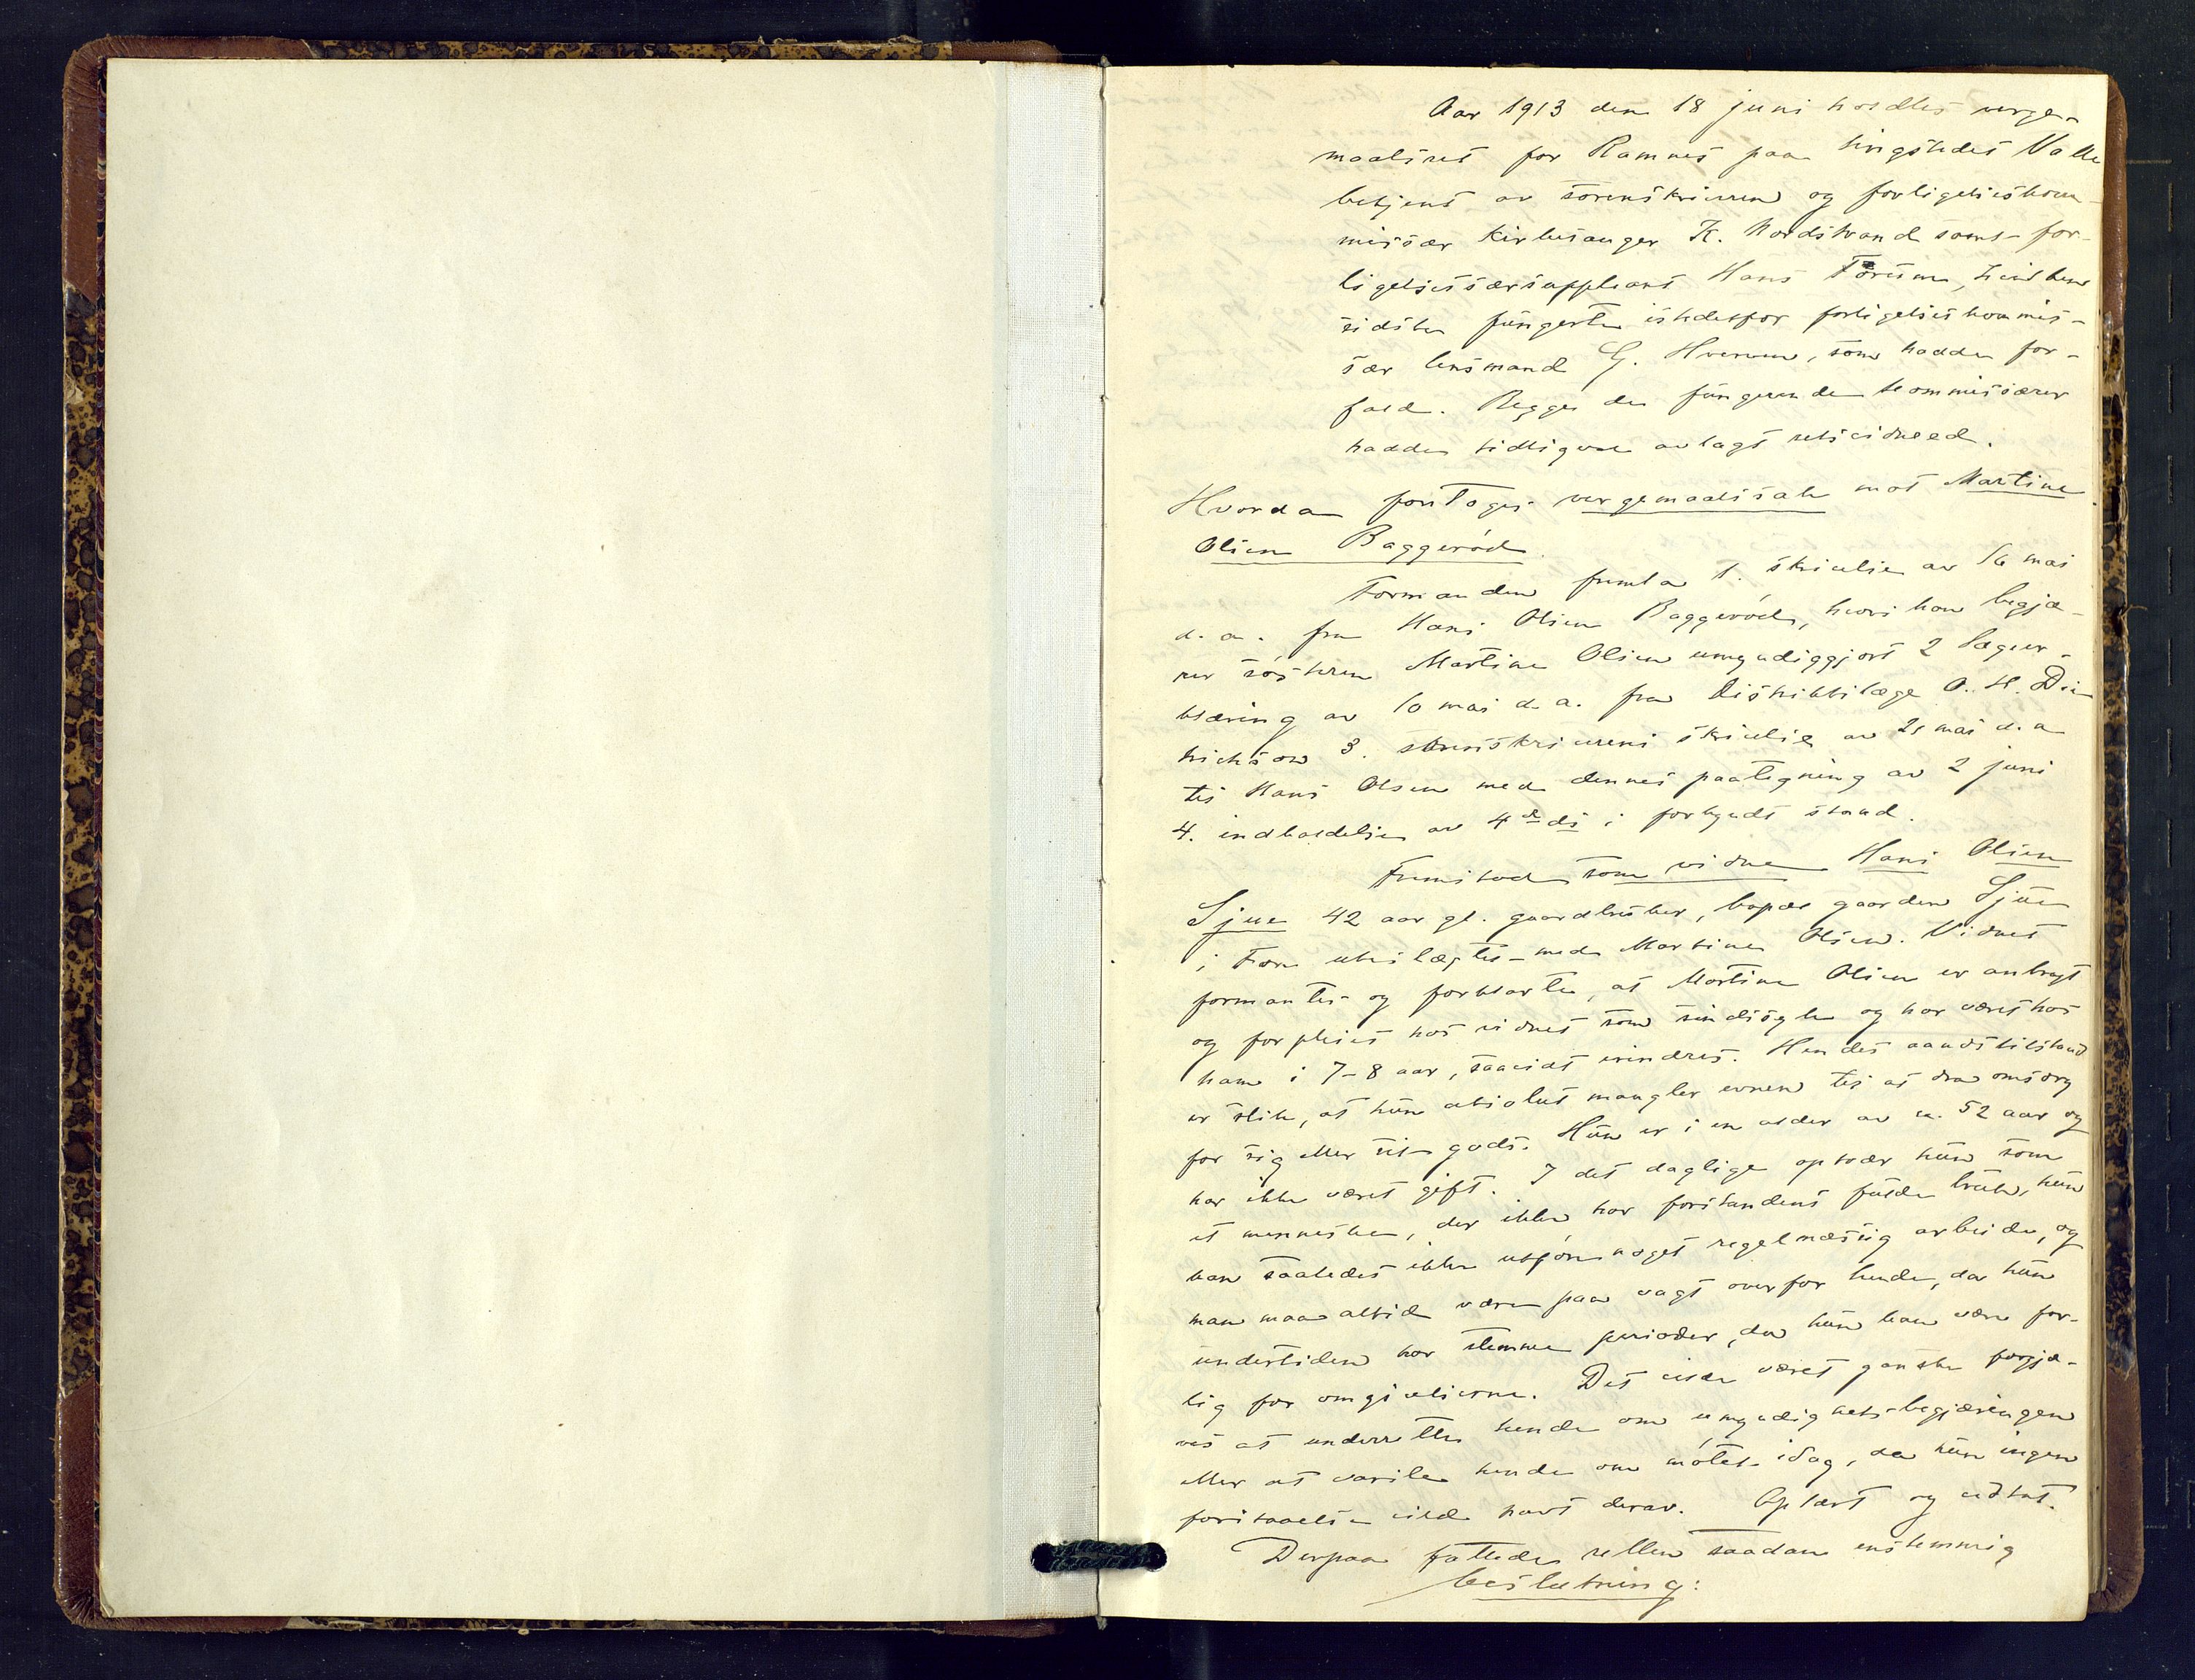 Aar 1913 den 18 juni holdtes verge-
maalsret for Ramnes paa tingstedet Valle
betjent av sorenskriveren og forligelseskom-
missær kirkesanger K. Nordstrand samt for-
ligelsessærsuppleant Hans Forum, hvilken
sidste fungerte istedetfor forligelseskommis-
sær lensmand G. Hverven, som hadde for-
fald. Begge de fungerende kommissærer
hadde tidligere avlagt rets eidneed.
Hvorda foretoges vergemaalssak mot Martine
Olsen Baggerød.
Formanden fremla 1. skrivelse av 16 mai
d. a. fra Hans Olsen Baggerød, hvori han begjæ-
rer søsteren Martine Olsen umyndiggjort 2 lægeer-
klæring av 10 mai d. a. fra distriktslæge O. H. Die-
trichson 3. sorenskriverens skrivelse av 21 mai d. a
til Hans Olsen med dennes paategning av 2 juni
4. indkaldelse av 4de ds i forkyndt stand.
Fremstod som vidne Hans Olsen
Sjue 42 aar gl. gaardbruker, bopæl gaarden Sjue
i Fon ubeslægtet med Martine Olsen. Vidnet
formantes og forklarte, at Martine Olsen er anbragt
og forpleies hos vidnet som sindssyk og har været hos
ham i 7-8 aar, saavidt erindres. Hendes aandstilstand
er slik, at hun absolut mangler evnen til at dra omsorg
for sig eller sit gods. Hun er i en alder av ca. 52 aar og
har ikke været gift. I det daglige optrær hun som
et menneske, der ikke har forstandens fulde bruk, hun
kan saaledes ikke utføre noget regelmæssig arbeide, og
man maa altid være paa vagt overfor hende, da hun
undertiden har slemme perioder, da hun kan være far-
lig for omgivelserne. Det vilde været ganske forgjæ-
ves at underrette hende om umyndighets-begjæringen
eller at varsle hende om møtet idag, da hun ingen
forstaaelse vilde havt derav. Oplæst og vedtat.
Derpaa fattedes retten saadan enstemmig
beslutning: